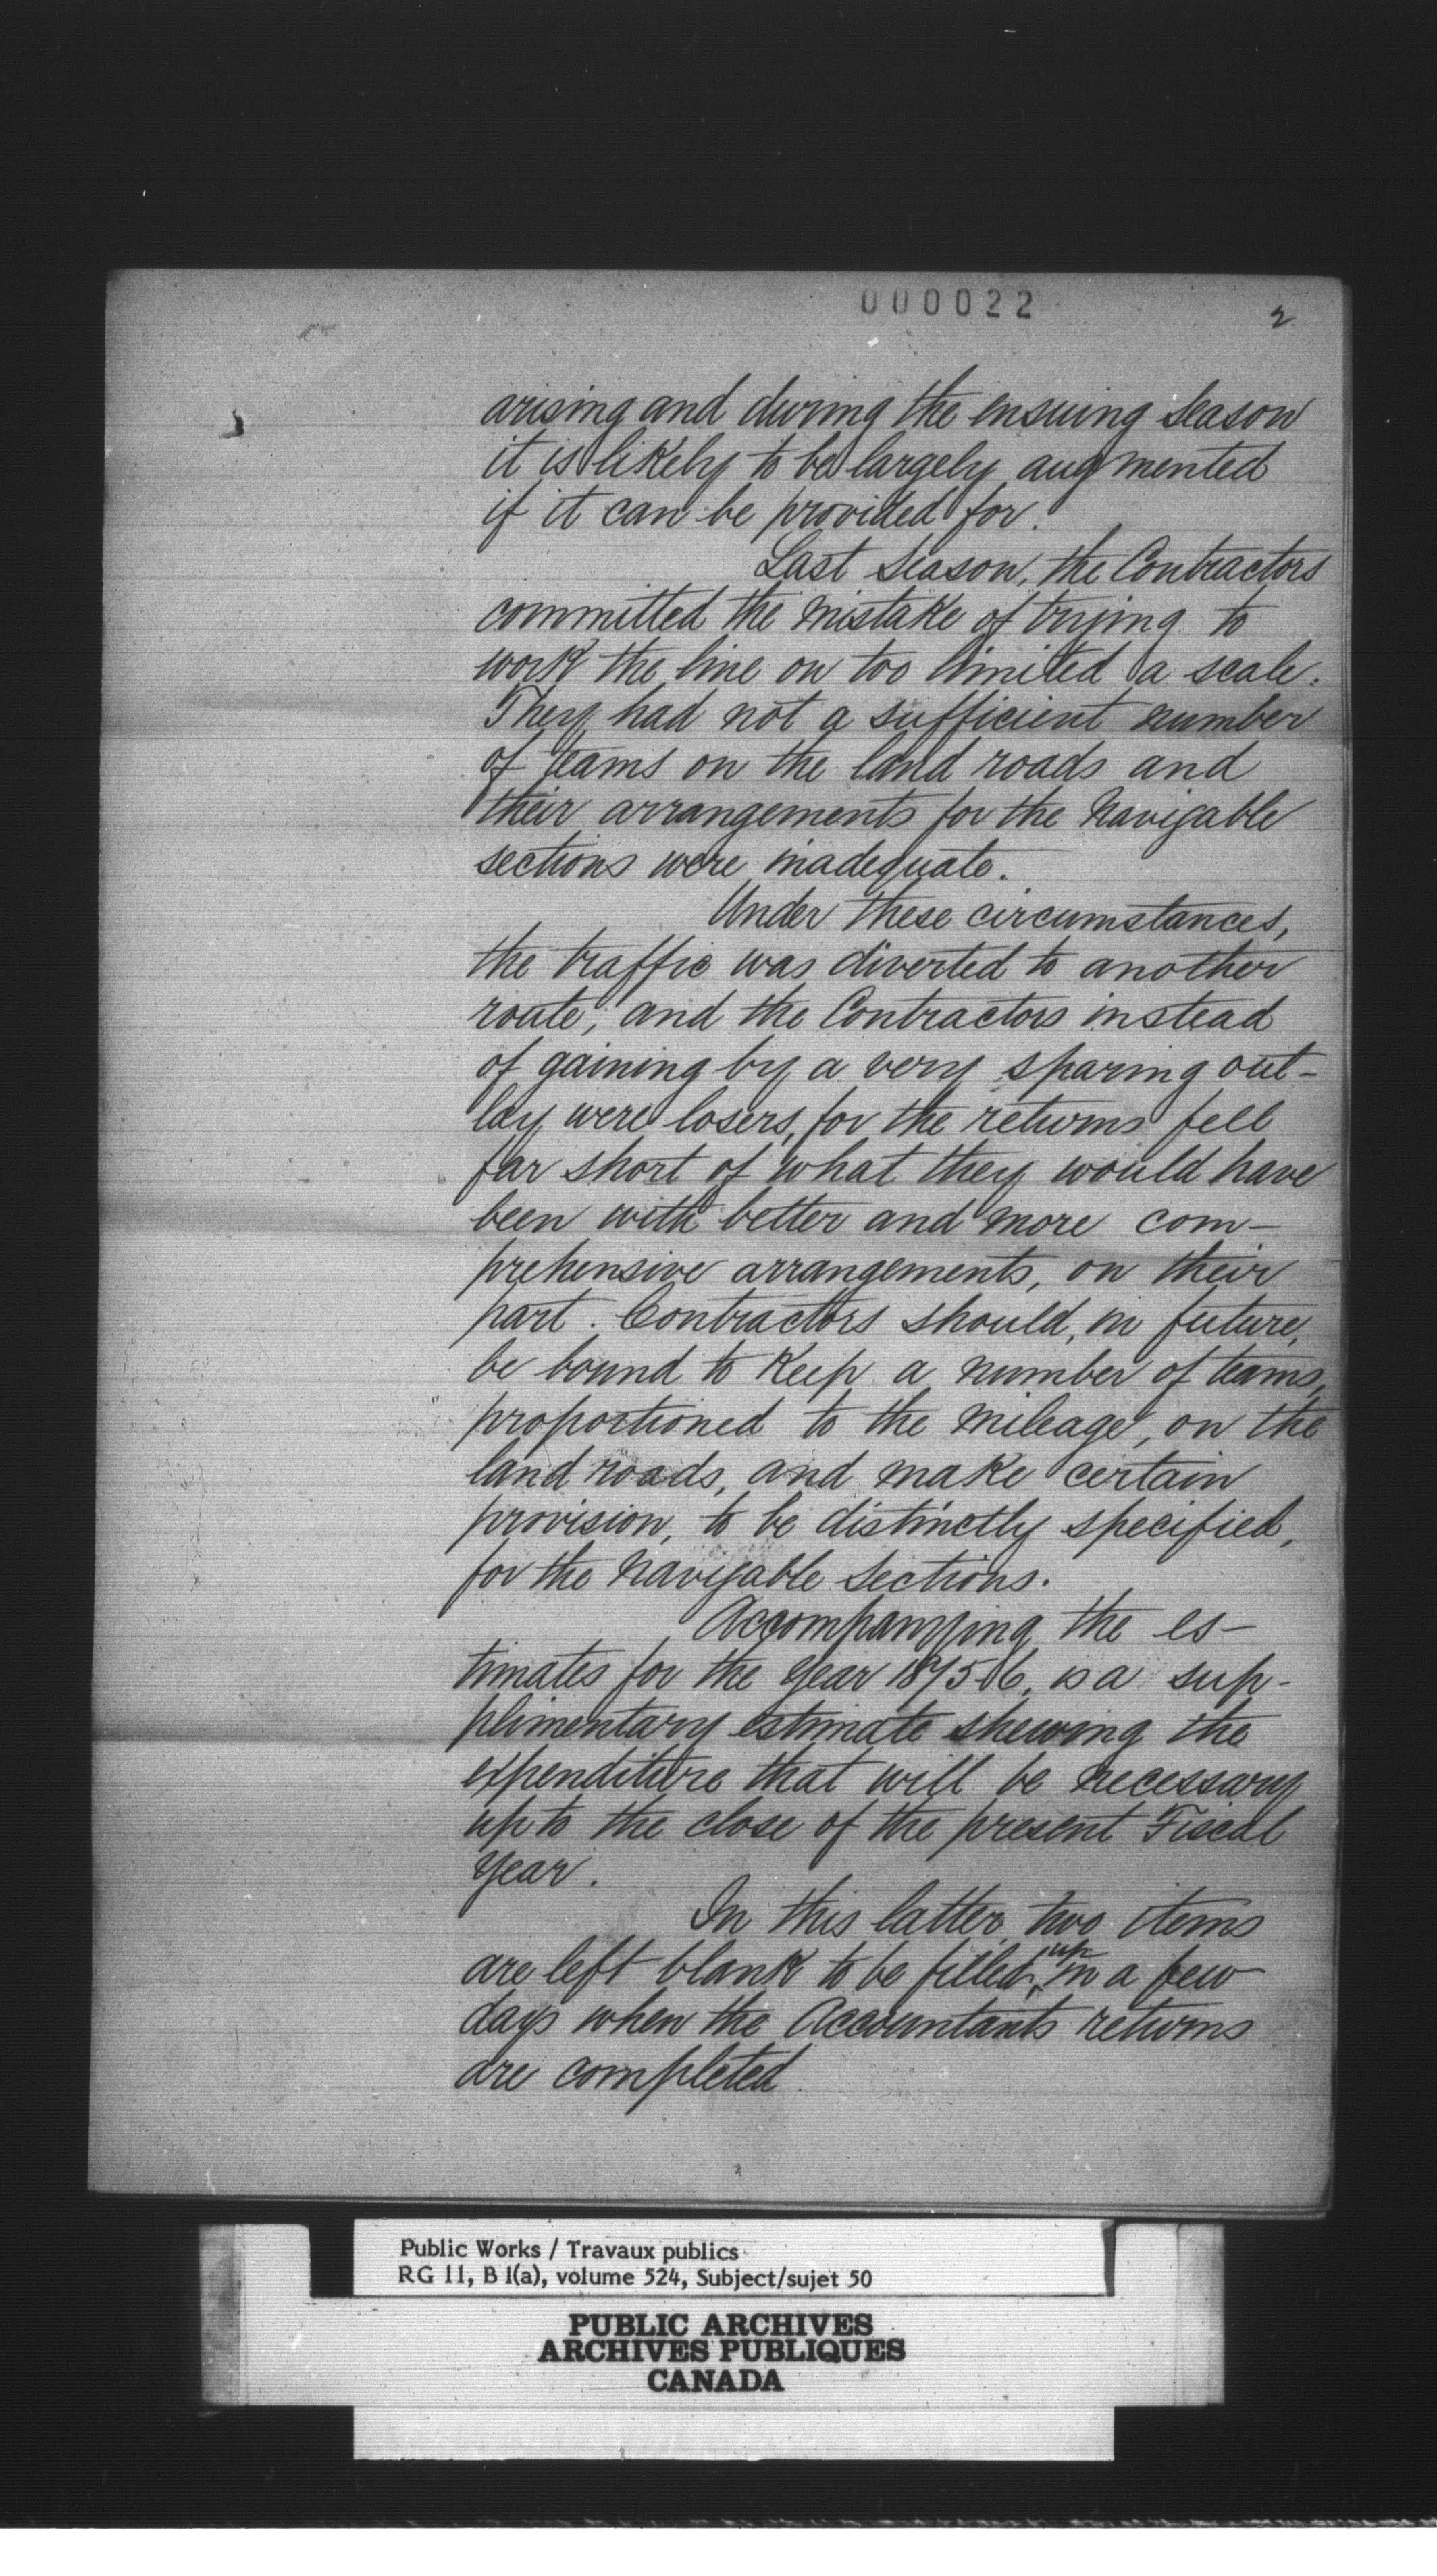 000022
2
arising and during the ensuing season
it is likely to be largely augmented
if it can be provided for.
Last Season, the Contractors
committed the mistake of trying to
work the line on too limited a scale.
They had not a sufficient number
of teams on the land roads and
their arrangements for the Navigable
sections were inadequate.
Under these circumstances,
the traffic was diverted to another
route, and the Contractors instead
of gaining by a very sparing out-
lay were losers, for the returns fell
far short of what they would have
been with better and more com-
prehensive arrangements, on their
part. Contractors should, in future,
be bound to keep a number of teams,
proportioned to the mileage, on the
land roads, and make certain
provision, to be distinctly specified,
for the Navigable Sections.
Accompanying the es-
timates for the year 1875-6, is a sup-
plimentary estimate shewing the
expenditure that will be necessary
up to the close of the present Fiscal
Year.
In this latter two items
are left blank to be filled up in a few
days when the Accountants returns
are completed.
Public Works / Travaux publics
RG 11, B 1(a), volume 524, Subject/sujet 50
PUBLIC ARCHIVES
ARCHIVES PUBLIQUES
CANADA